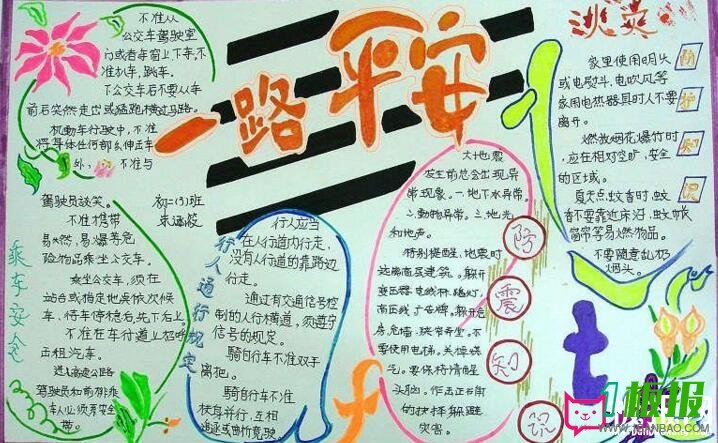 一路平安
不准从
公交车驾驶室
门或者车窗上下车，不
准扒车、跳车。
下公交车后不要从车
前后突然走出或猛跑横过马路。
机动车行驶中，不准
将身体任何部分伸出车
外，不准与
驾驶员谈笑。
不准携带
易燃、易爆等危
险物品乘坐公交车。
乘坐公交车，须在
站台或指定地点依次候
车，待车停稳后，先下后上。
不准在车行道上招呼
出租汽车。
进入高速公路
驾驶员和前排乘
车人必须系安全
带。
乘车安全
初二(3)班
行人通行规定
行人应当
在人行道内行走，
没有人行道的靠路边
行走。
通过有交通信号控
制的人行横道，须遵守
信号的规定。
骑自行车不准双手
离把。
骑自行车不准
扶身并行、互相
追逐或曲折竞驶
大地震
发生前总会出现异
常现象。一.地下水异常。
二.动物异常。三.地光
和地声。
特别提醒，地震时
远离高层建筑。躲开
变压器、电线杆、路灯，
高压线、广告牌。躲开危
房、危墙、狭窄弄堂。不
要使用电梯。关掉煤
气。要保持清醒
头脑。作出正确
的抉择躲避
灾害。
防
震
知
识
家里使用明火
或电熨斗、电吹风等
家用电热器具时人不要
离开。
燃放烟花爆竹时，
应在相对空旷，安全
的区域。
夏天点蚊香时，蚊
香不要靠近床沿、蚊帐
窗帘等易燃物品。
不要随意乱扔
烟头。
防
护
知
识
板报